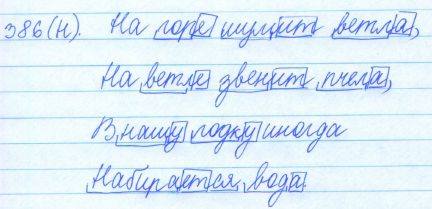 386(н). На горе шумит ветла,
На ветле звенит пчела,
В нашу лодку иногда
Набирается вода.